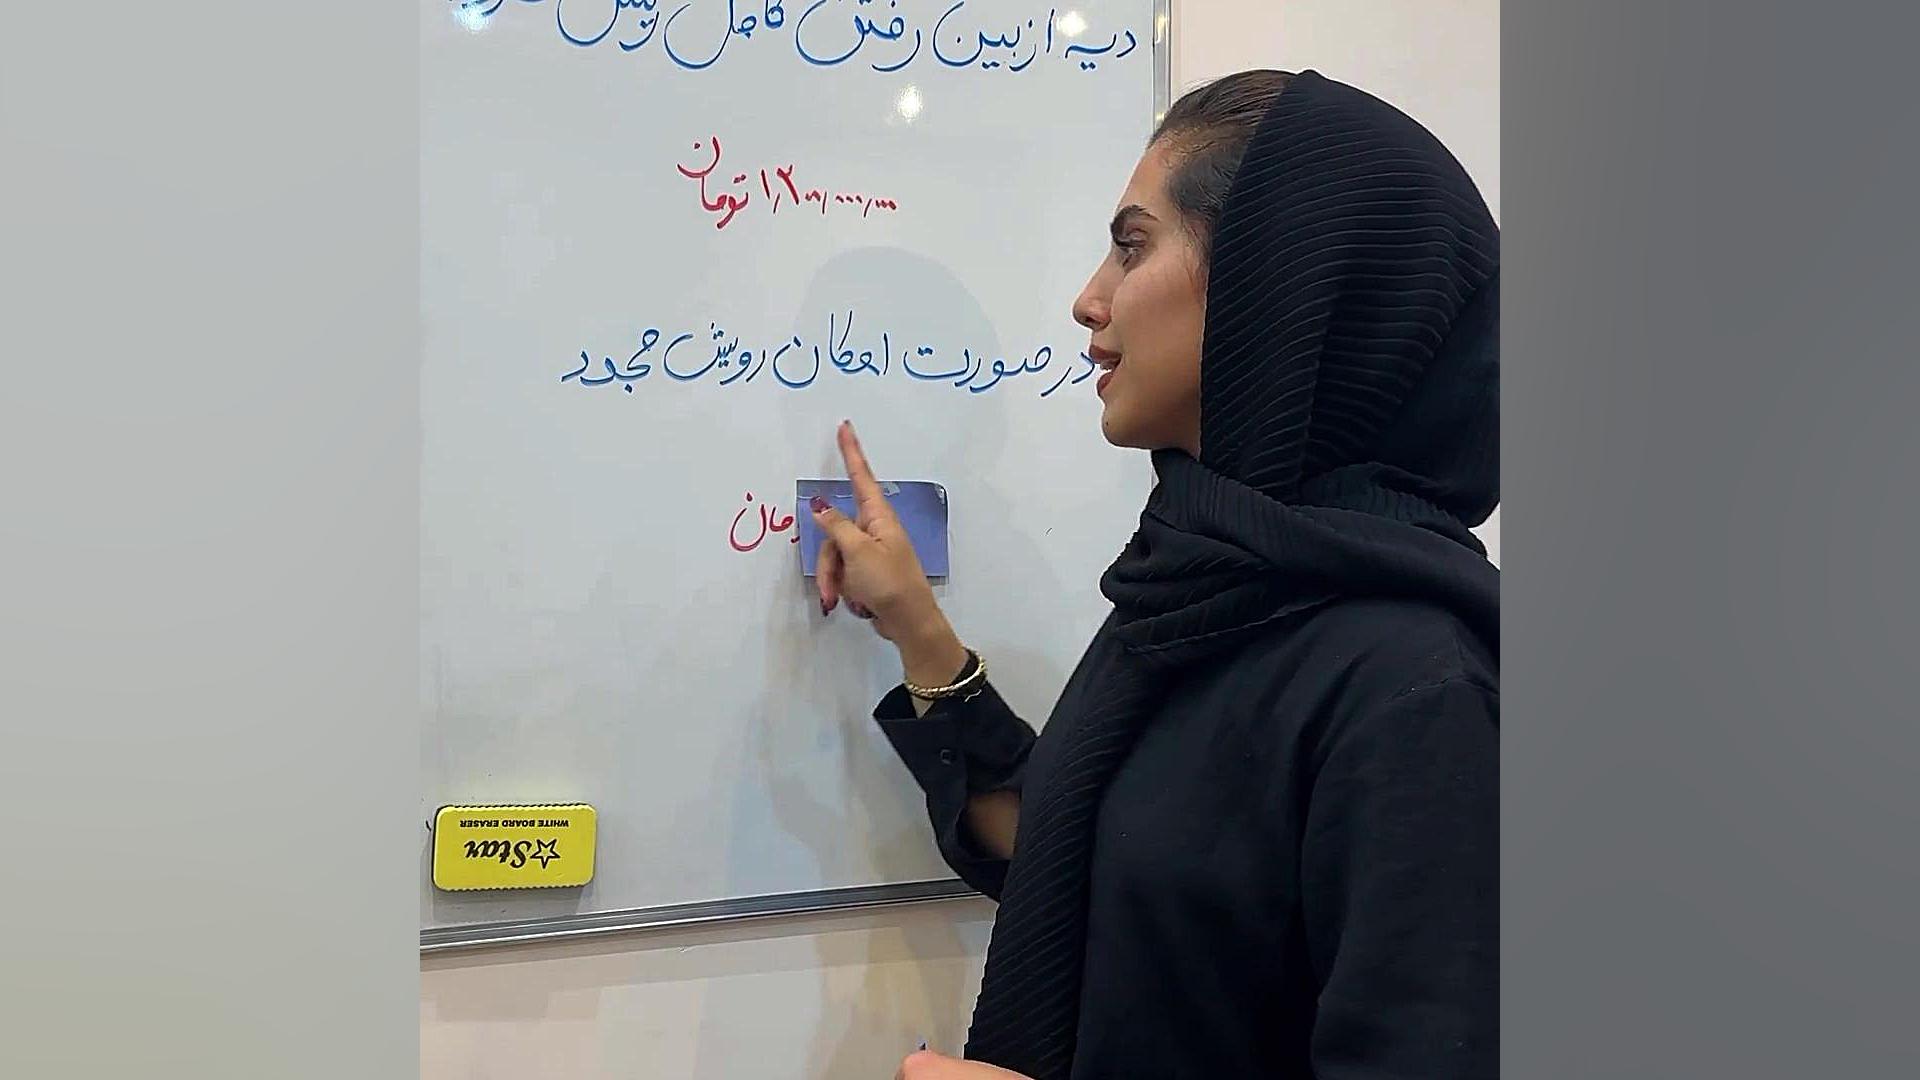 دیه از بین رفتن کامل ریش
۱٫۲۰۰٫۰۰۰٫۰۰۰ تومان
در صورت امکان رویش مجدد
ومان
Star
WHITE BOARD ERASER